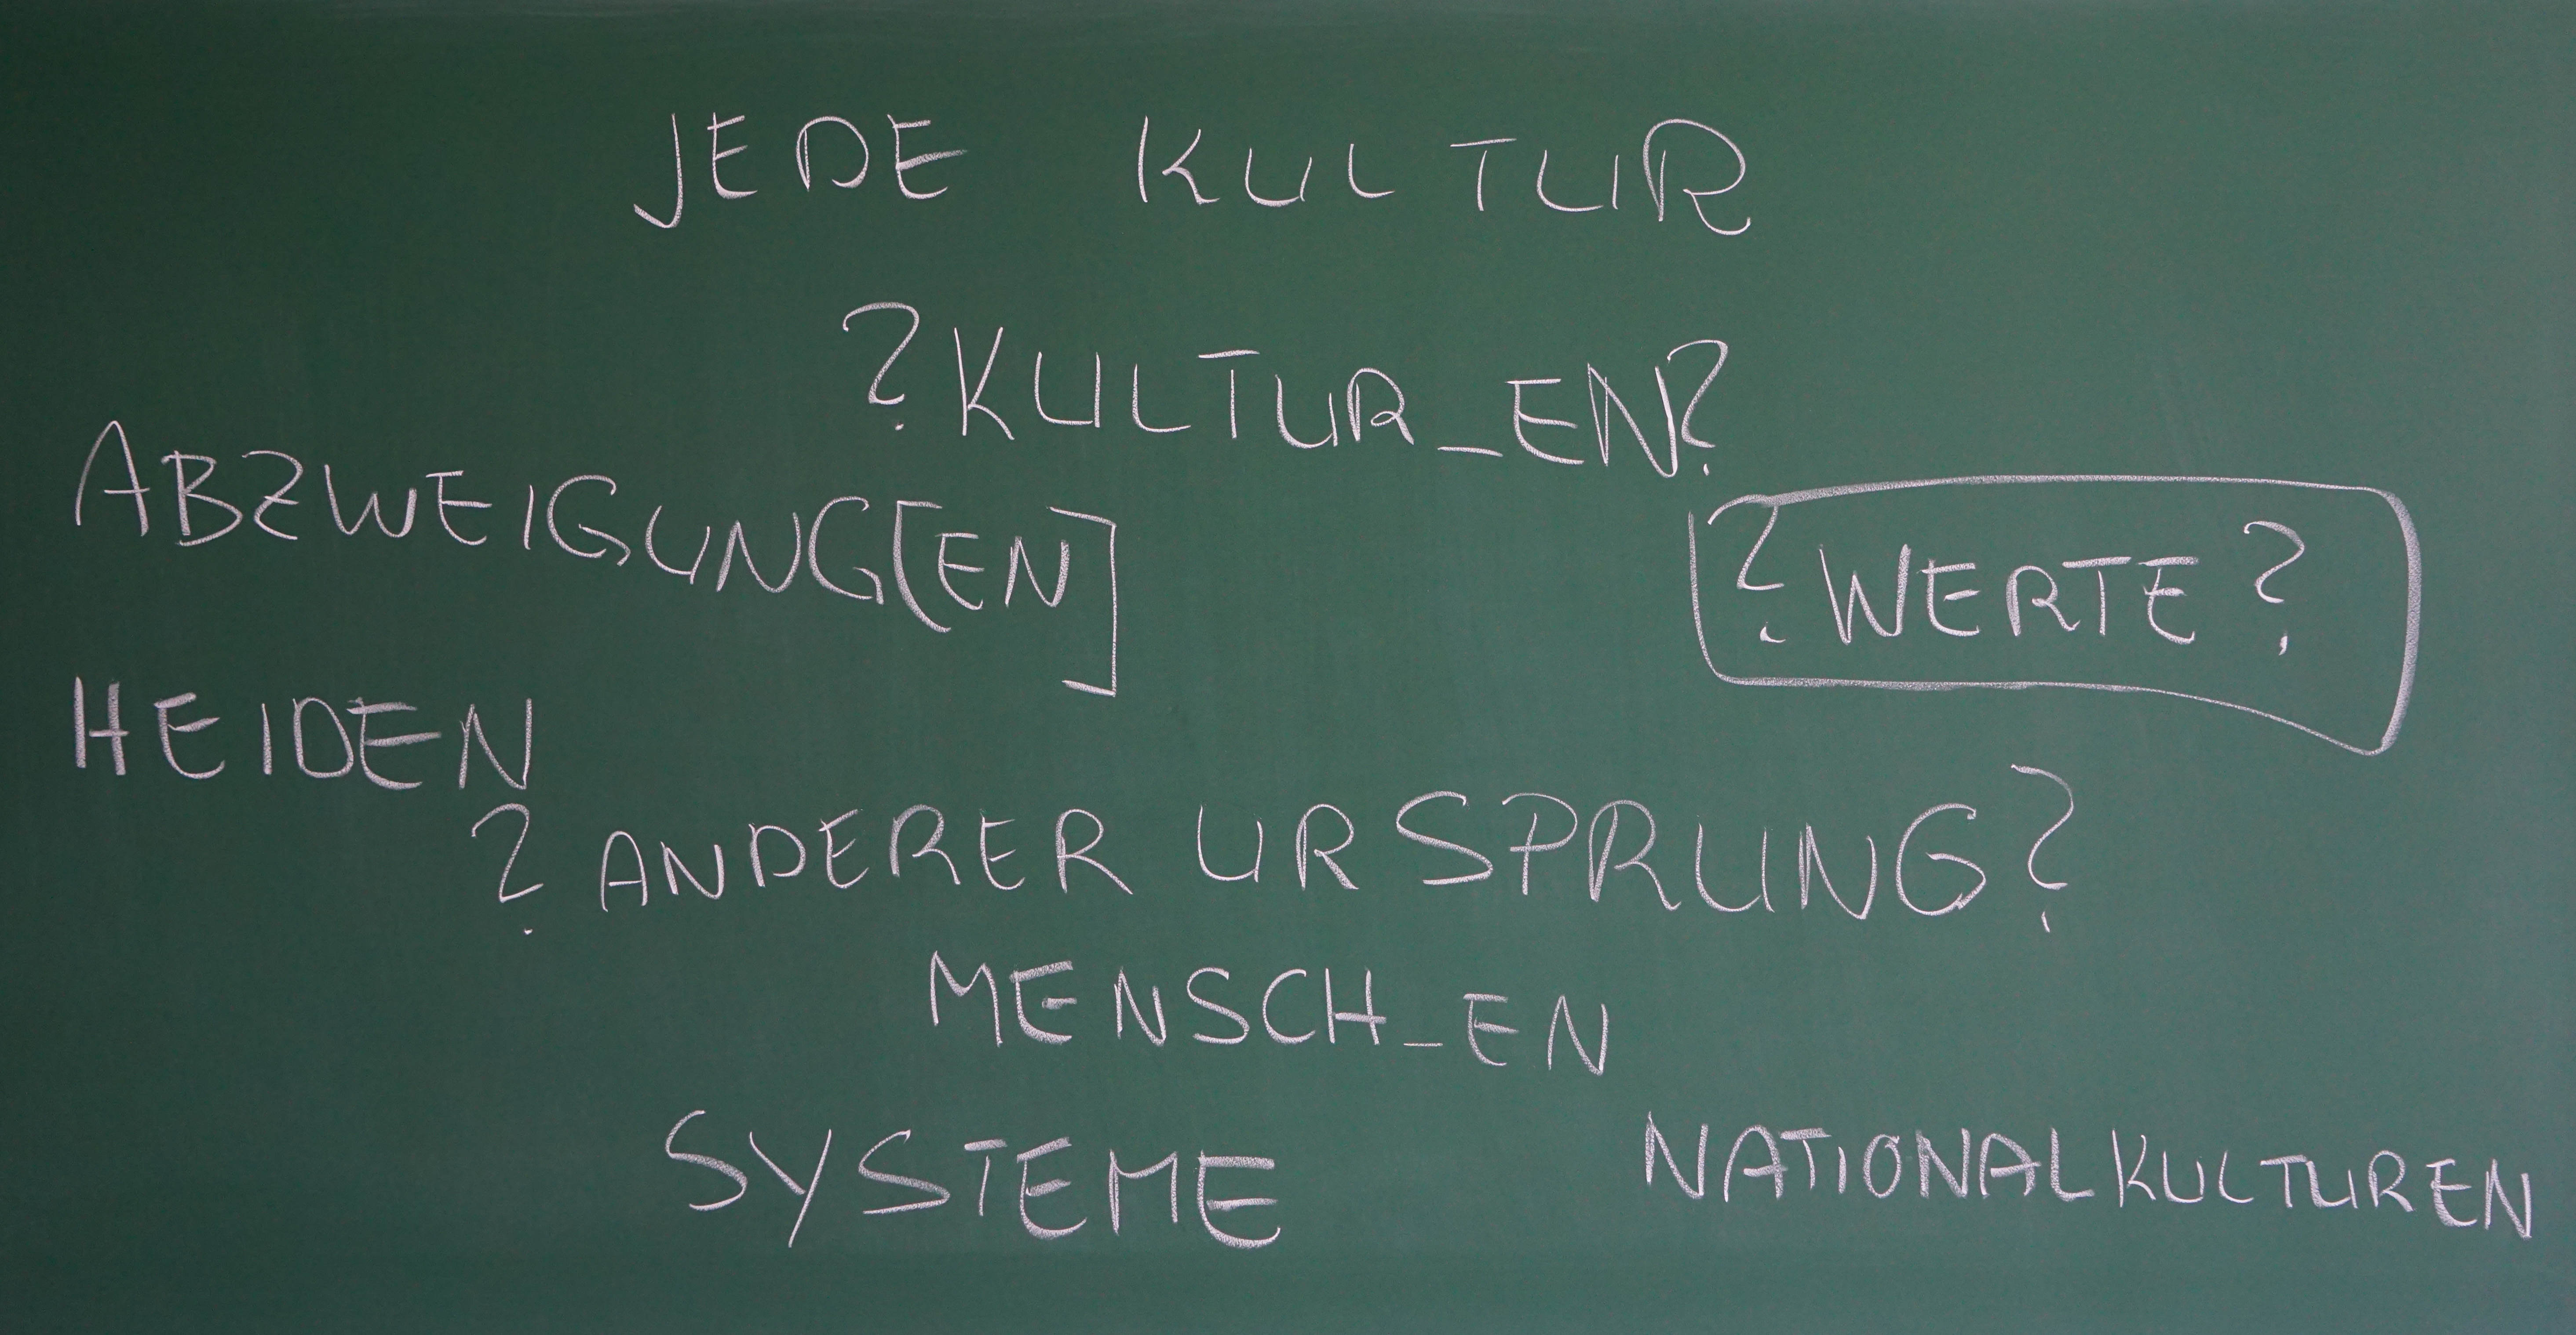 JEDE KULTUR
?KULTUR_EN?
ABZWEIGUNG[EN]
?WERTE?
HEIDEN
?ANDERER URSPRUNG?
MENSCH_EN
SYSTEME
NATIONALKULTUREN